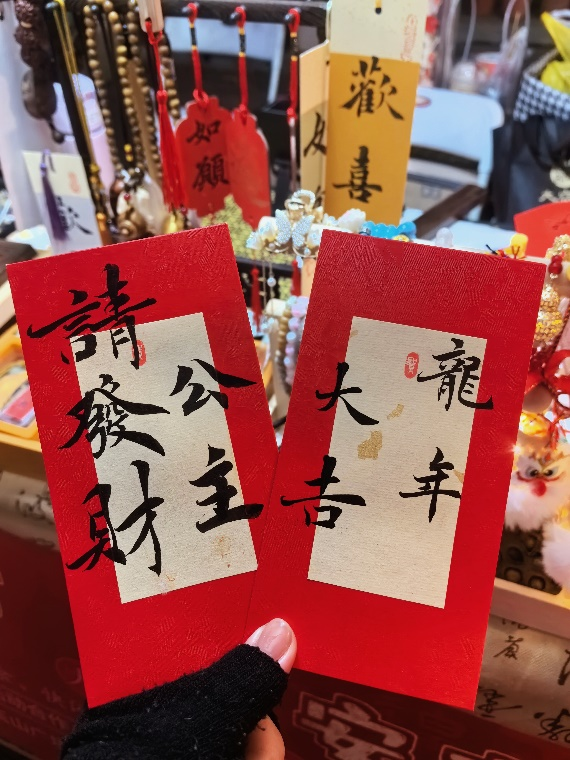 如願
歡喜
公主
請發財
龍年
大吉